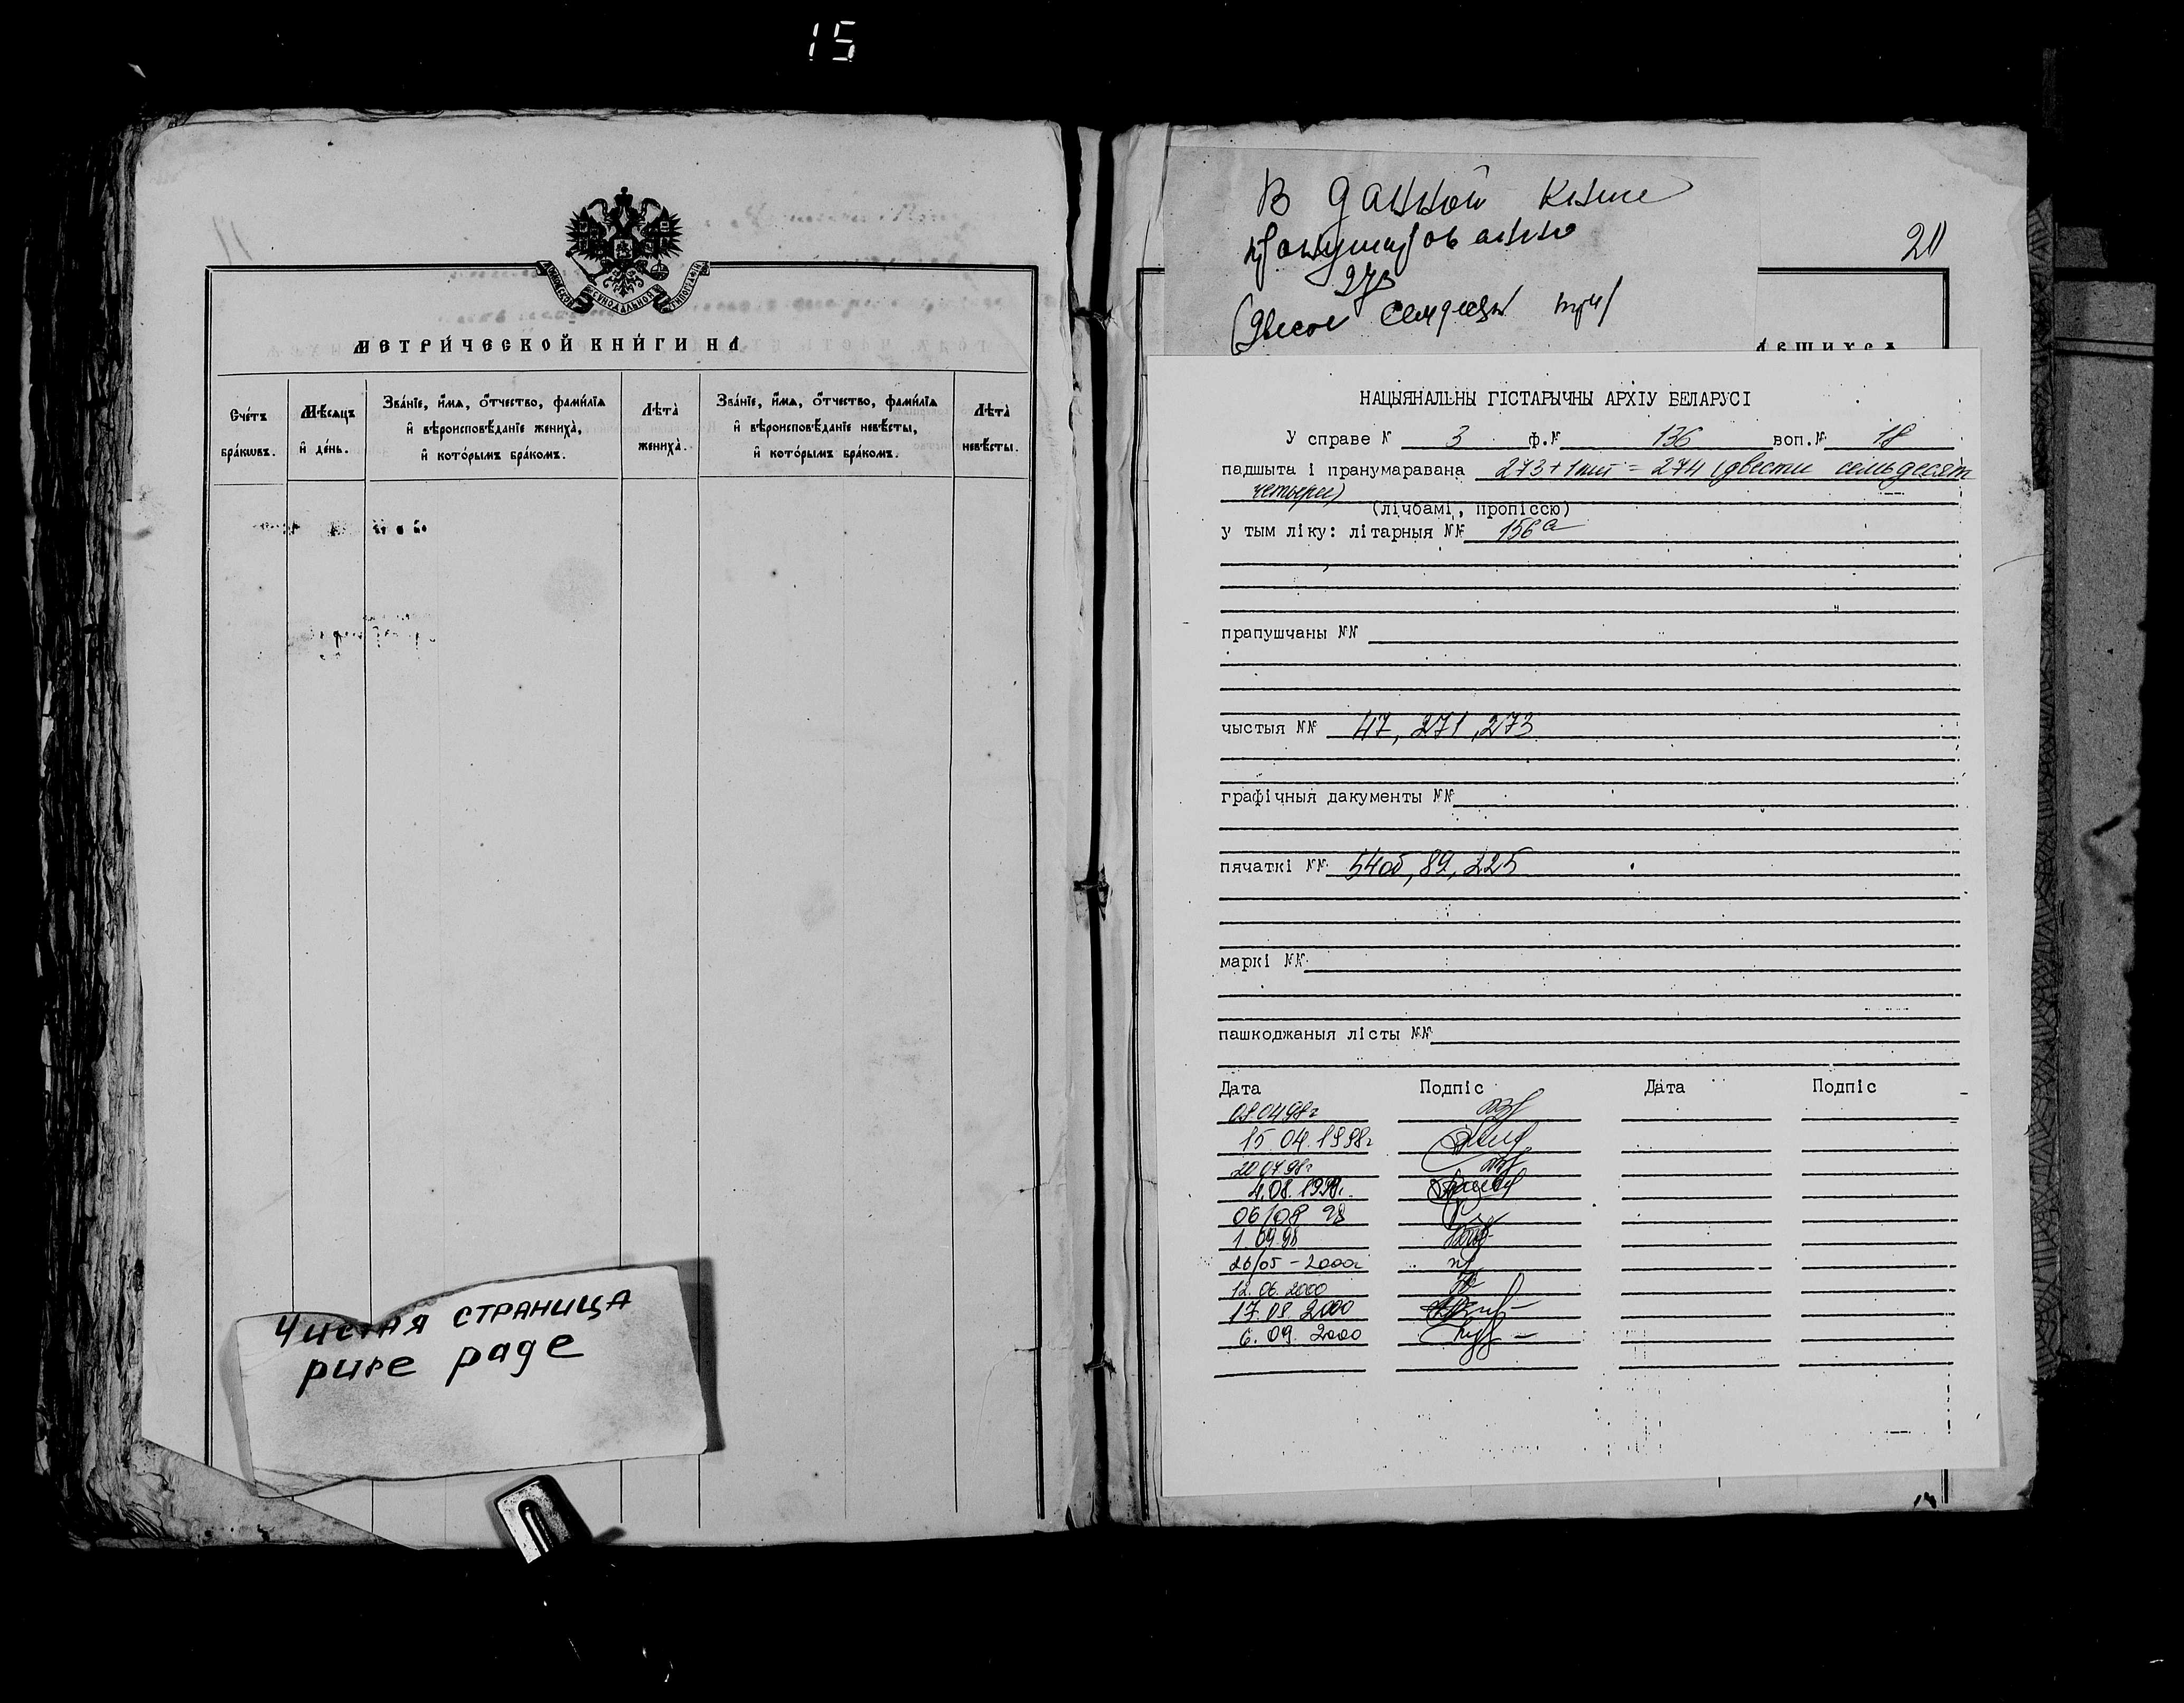 15
МОСКОВСКОЙ СѴНОДАЛЬНОЙ ТИПОГРАФІИ
МЕТРИ́ЧЕСКОЙ КНИ́ГИ НА
Сче́тъ бра́кѡвъ.
Мѣ́сяцъ и҆ де́нь.
Зва́нїе, и҆́мѧ, ѻ҆́тчество, фами́лїѧ и҆ вѣроисповѣ́данїе жениха̀, и҆ кото́рымъ бра́комъ.
Лѣта̀ жениха̀.
Зва́нїе, и҆́мѧ, ѻ҆́тчество, фами́лїѧ и҆ вѣроисповѣ́данїе невѣ́сты, и҆ кото́рымъ бра́комъ.
Лѣта̀ невѣ́сты.
Чистая страница
pure page
В данной книге
пронумеровано
273
(двести семьдесят три)
НАЦЫЯНАЛЬНЫ ГІСТАРЫЧНЫ АРХІУ БЕЛАРУСІ
У справе № 3 ф.№ 136 воп.№ 18
падшыта і пранумаравана 273+1 лит = 274 (двести семьдесят
четыре)
(лічбамі, пропіссю)
у тым ліку: літарныя №№ 156а
прапушчаны №№
чыстыя №№ 47, 271, 273
графічныя дакументы №№
пячаткі №№ 54об, 89, 225
маркі №№
пашкоджаныя лісты №№
Дата Подпіс Дата Подпіс
08.04.98г
15.04.1998г
20.07.98г
4.08.1998г.
06/08 98
1.09.98
26/05-2000г
12.06.2000
17.08.2000
6.09.2000